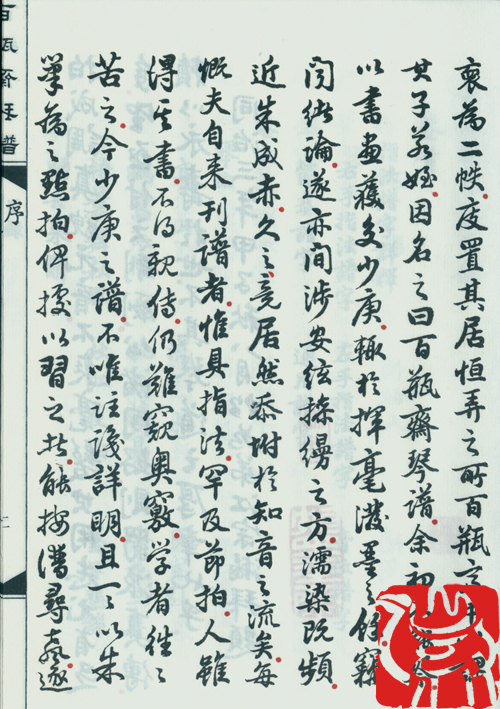 裒為二帙庋置其居恒弄之所百瓶
其子若姪因名之曰百瓶齋琴譜余初
以書畫獲交少庚輒於揮毫潑墨之餘竊
聞緒論遂亦間涉安絃操縵之方濡染既頻
近朱成赤久之竟居然忝附於知音之流矣每
慨夫自来刊譜者惟具指法罕及節拍人雖
得其書不得親侍仍難窺奧竅學者往々
苦之今少庚之譜不唯註識詳明且一一以朱
筆為之點拍俾援以習之者能按譜尋聲遂
百瓶齋琴譜
序